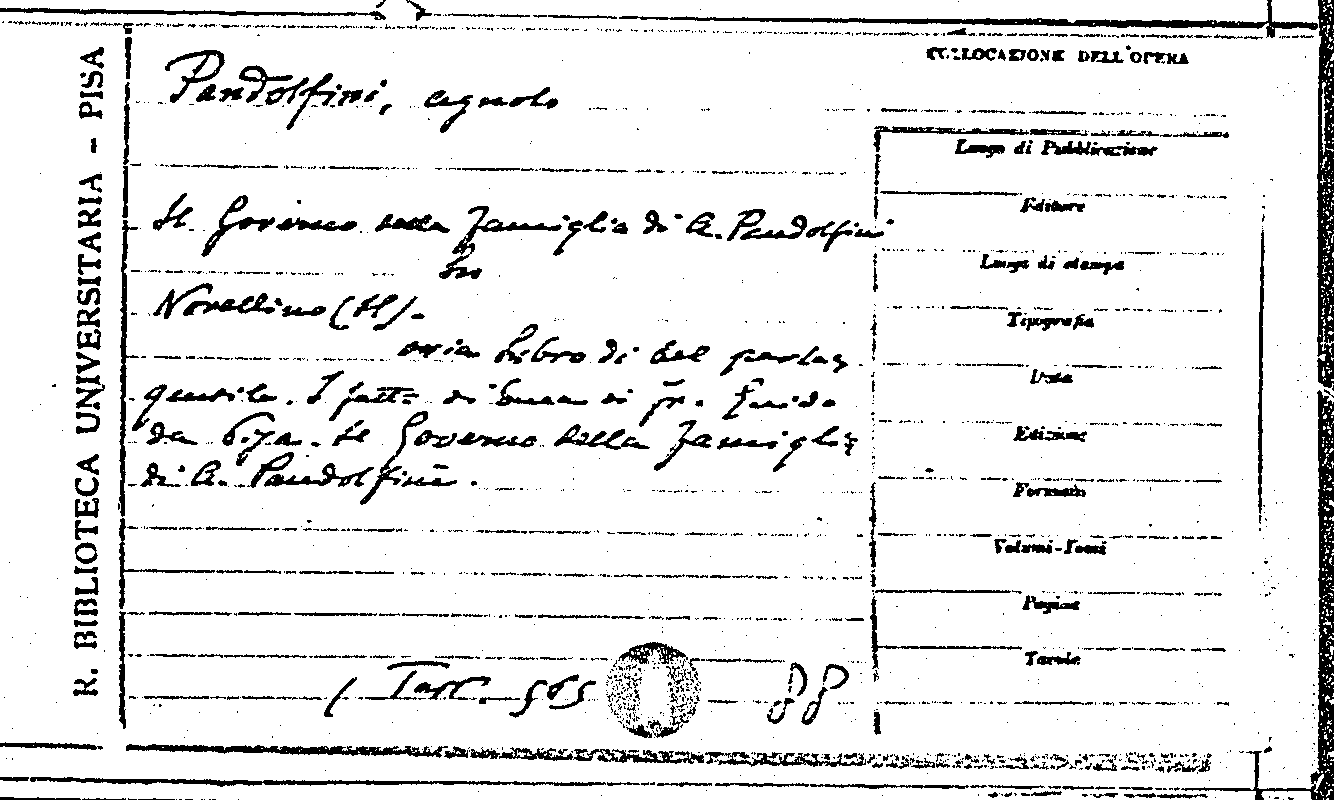 R. BIBLIOTECA UNIVERSITARIA - PISA
Pandolfini, Agnolo
Il Governo della Famiglia di A. Pandolfini
In
Novellino (Il).
ovvia Libro di bel parlar
gentile. I fatti di Enea di fr. Guido
da Pisa. Il Governo della Famiglia
di A. Pandolfini.
Tarr. 565
COLLOCAZIONE DELL'OPERA
Luogo di Pubblicazione
Editore
Luogo di stampa
Tipografia
Data
Edizione
Formato
Volumi-Tomi
Pagine
Tavole